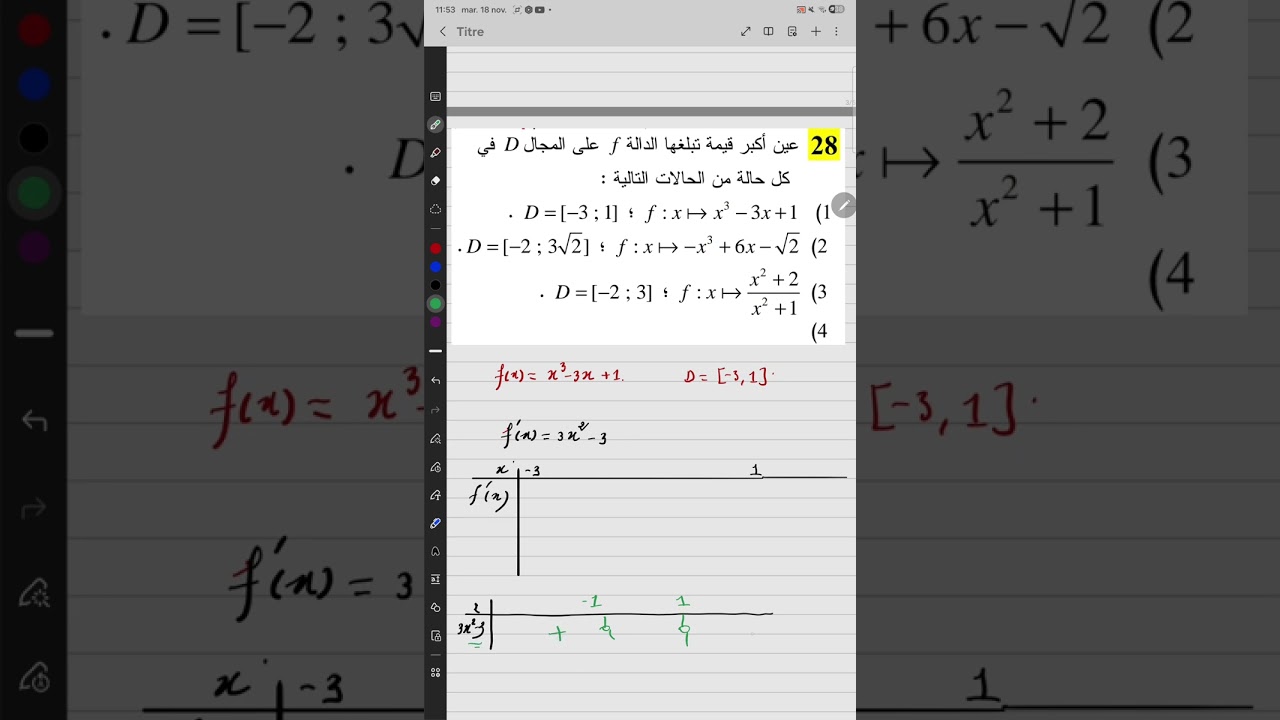 11:53 mar. 18 nov.
Titre
28 عين أكبر قيمة تبلغها الدالة f على المجال D في
كل حالة من الحالات التالية :
1) f : x ↦ x³ − 3x + 1 ؛ D = [−3 ; 1] .
2) f : x ↦ −x³ + 6x − √2 ؛ D = [−2 ; 3√2] .
3) f : x ↦ (x² + 2)/(x² + 1) ؛ D = [−2 ; 3] .
4)
f(x) = x³ − 3x + 1. D = [−3, 1].
f'(x) = 3x² − 3
x −3 1
f'(x)
−1 1
x
3x²−3 + 0 0
. D = [−2 ; 3√
+ 6x − √2 (2
. D
x ↦ (x² + 2)/(x² + 1) (3
(4
f(x) = x³
[−3, 1].
f'(x) = 3
x −3
1